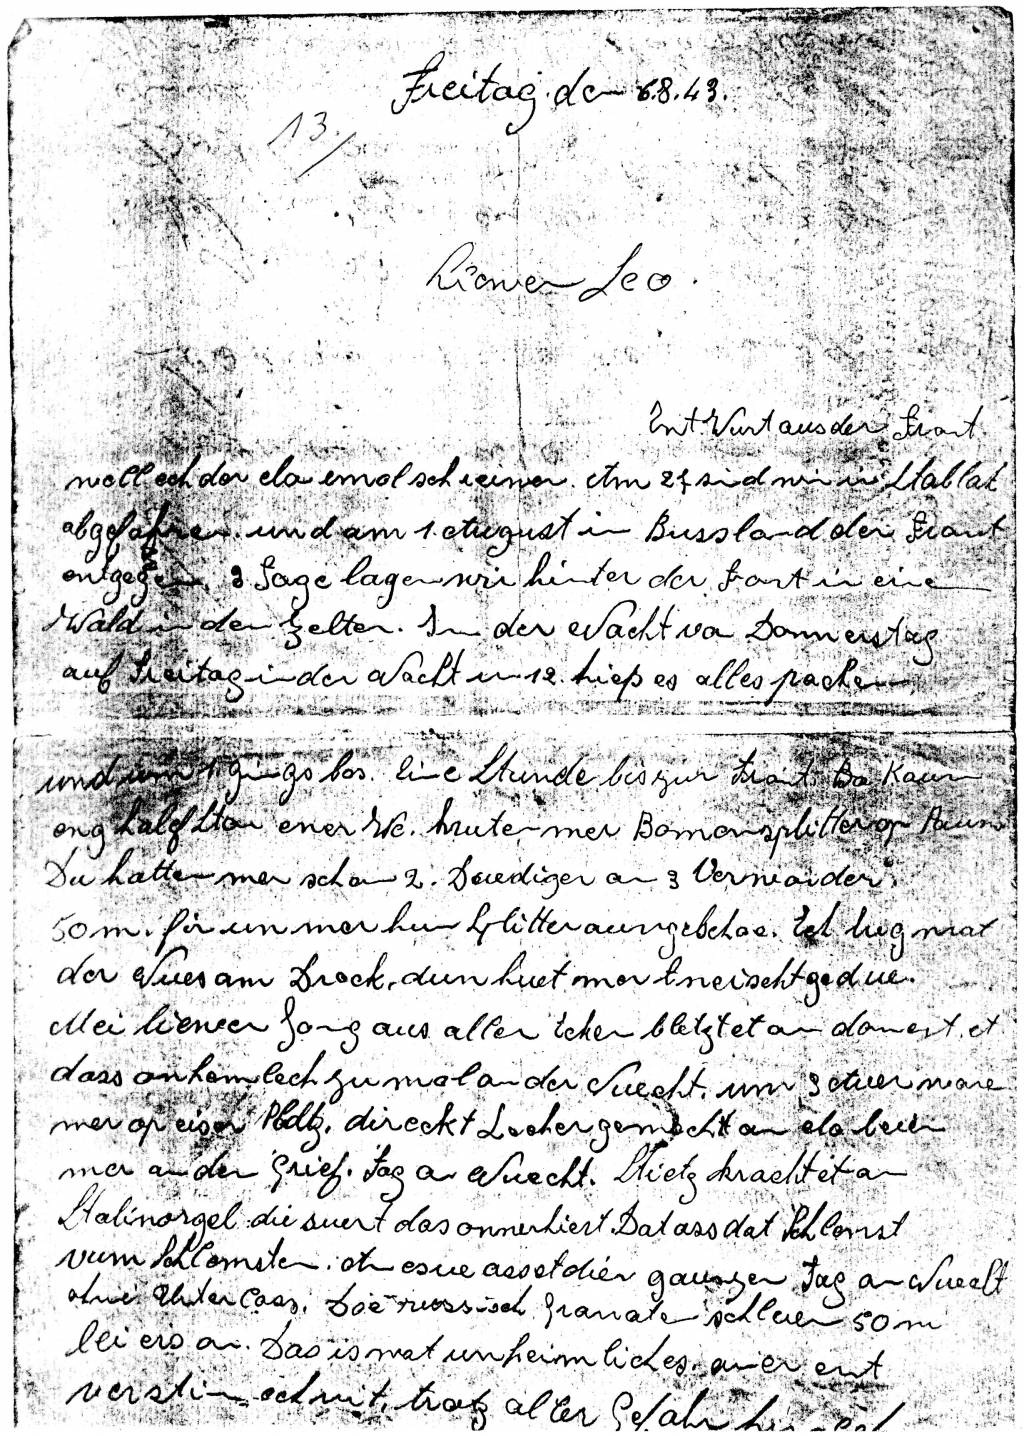 Freitag. den 6.8.43.
13.
Liewen Leo.
Ent Wurt aus der Front
well ech dor elo emol schreiwen. Am 27 sind wir in Stablak
abgefahren und am 1. August in Russland der Front
entgegen. 3 Tage lagen wir hinter der Font in eine
Wald in den Zelten. In der Nacht va Donnerstag
auf Freitag in der Nacht um 12. hiess es alles packen
und um 1 gings los. Eine Stunde bis zur Front. Bo Kaum
eng half Ston ener We. hruten mer Bomensplitter op
Du hatten mer schon 2. Doudiger an 3 Verwonder.
50 m. fir un mer hun Splitter
Ech lug mat
der Nues am Dreck, dun huet mer t neischt gedue.
Mei liewen Jong aus allen Ecken bletzt et an donnert et
dass onheemlech zumol an der Nuecht. um 3 Auer ware
mer op eiser Platz. direckt Locher gemacht an elo leien
mer an der Grief. Tag a Nuecht. Stietz kracht et an
Stalinorgel die suert das onnerhiert. Dat ass dat Schlemst
vum Schlemsten. an esue ass et dien ganzen Tag an Nuecht
ohne Unterlass. Doe russisch Granaten schloen 50 m
bei eis an. Das is wat unheimliches. an er ent
verstin ech net. trotz aller Gefahr